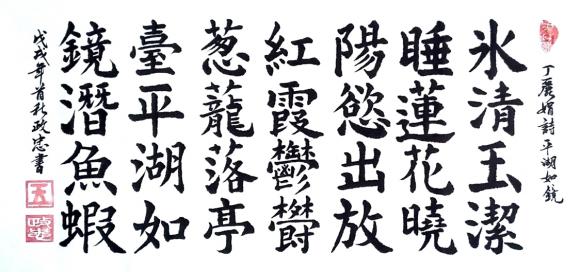 丁麗娟詩平湖如鏡
氷清玉潔
睡蓮花曉
陽慾出放
紅霞鬱欝
葱蘢落亭
臺平湖如
鏡潛魚蝦
戊戌年首秋政忠書